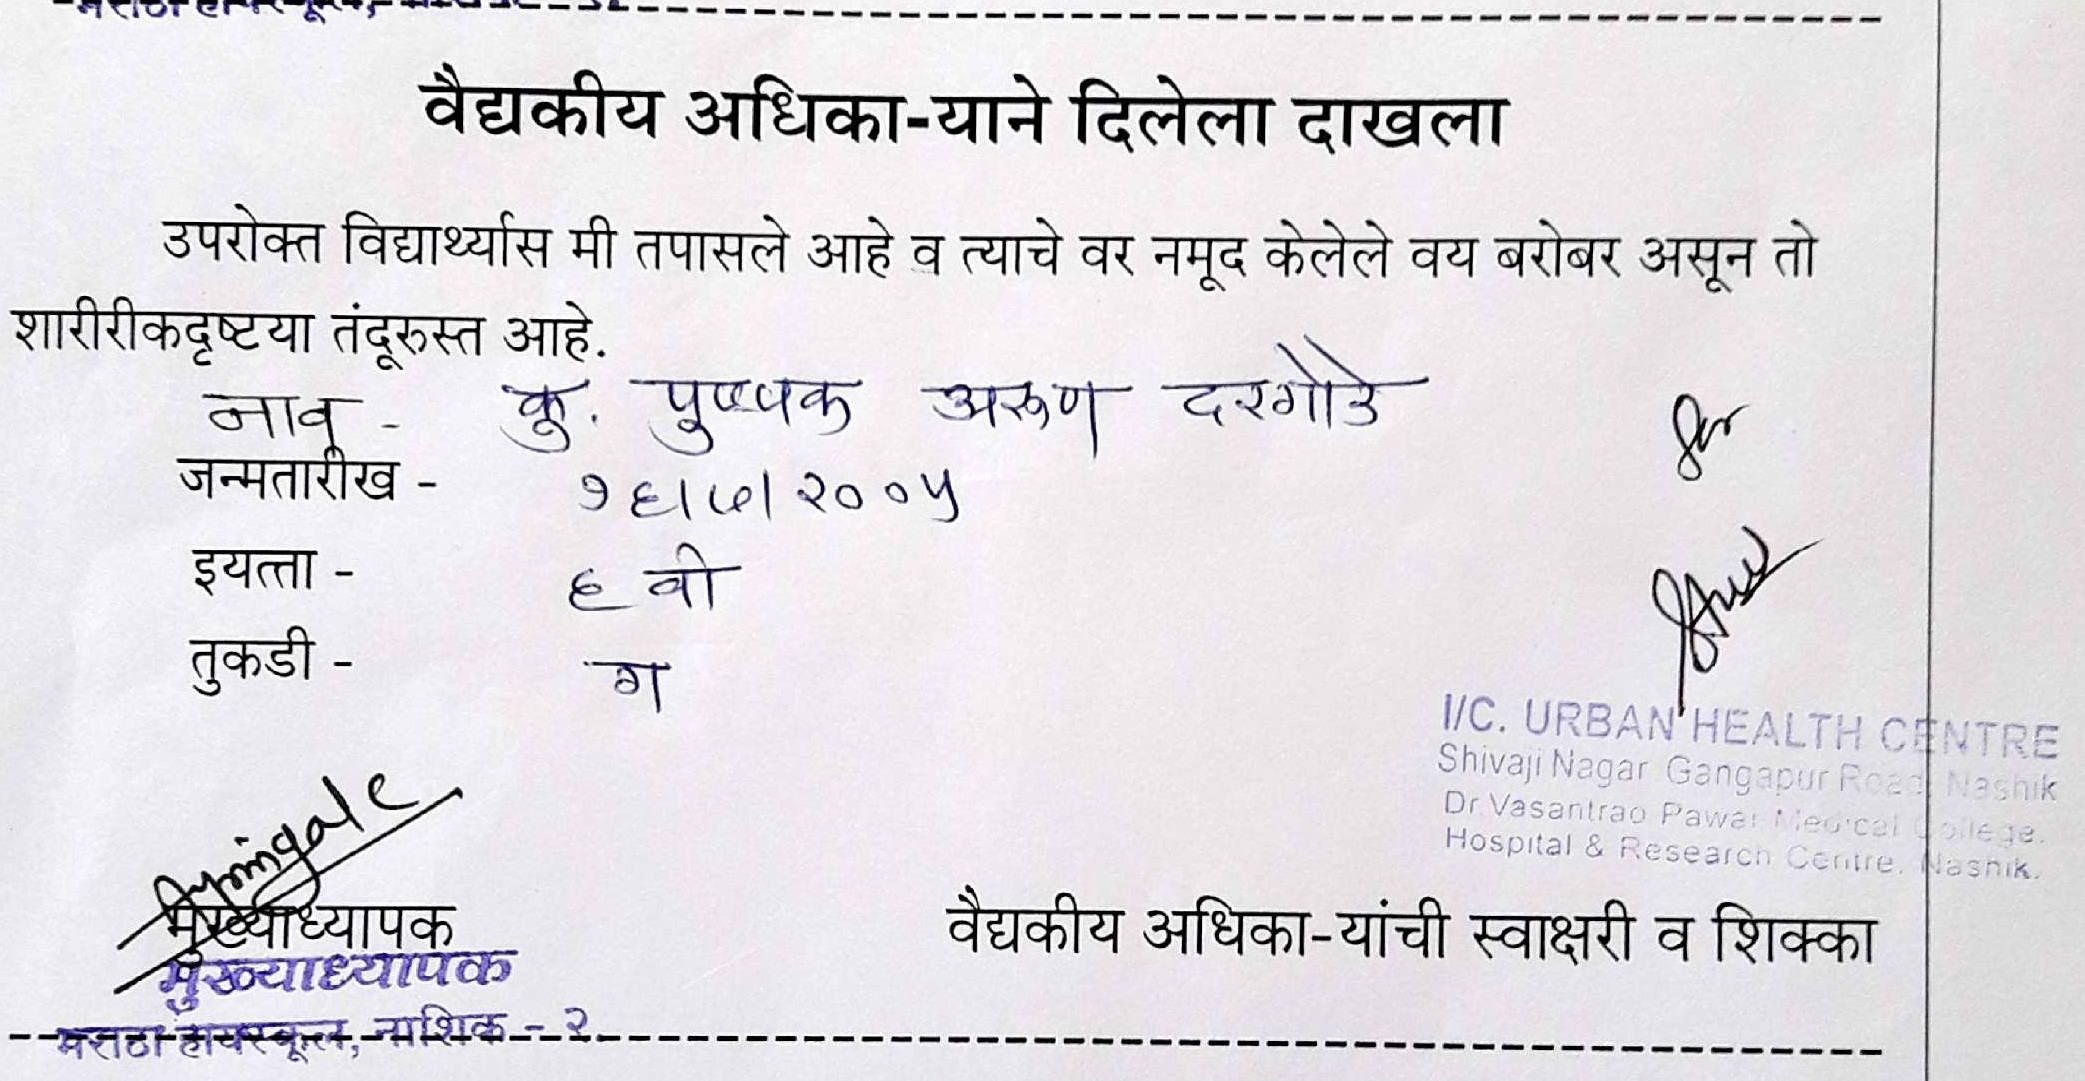 मराठा हायस्कूल,
वैद्यकीय अधिका-याने दिलेला दाखला
उपरोक्त विद्यार्थ्यास मी तपासले आहे व त्याचे वर नमूद केलेले वय बरोबर असून तो
शारीरीकदृष्टया तंदूरुस्त आहे.
नाव - कु. पुष्पक अरुण दरगोडे
जन्मतारीख - १६/७/२००५
इयत्ता - ६ वी
तुकडी - ग
I/C. URBAN HEALTH CENTRE
Shivaji Nagar Gangapur Road Nashik
Dr Vasantrao Pawar Medical College.
Hospital & Research Centre. Nashik.
मुख्याध्यापक
वैद्यकीय अधिका-यांची स्वाक्षरी व शिक्का
मुख्याध्यापक
मराठा हायस्कूल, नाशिक - २.